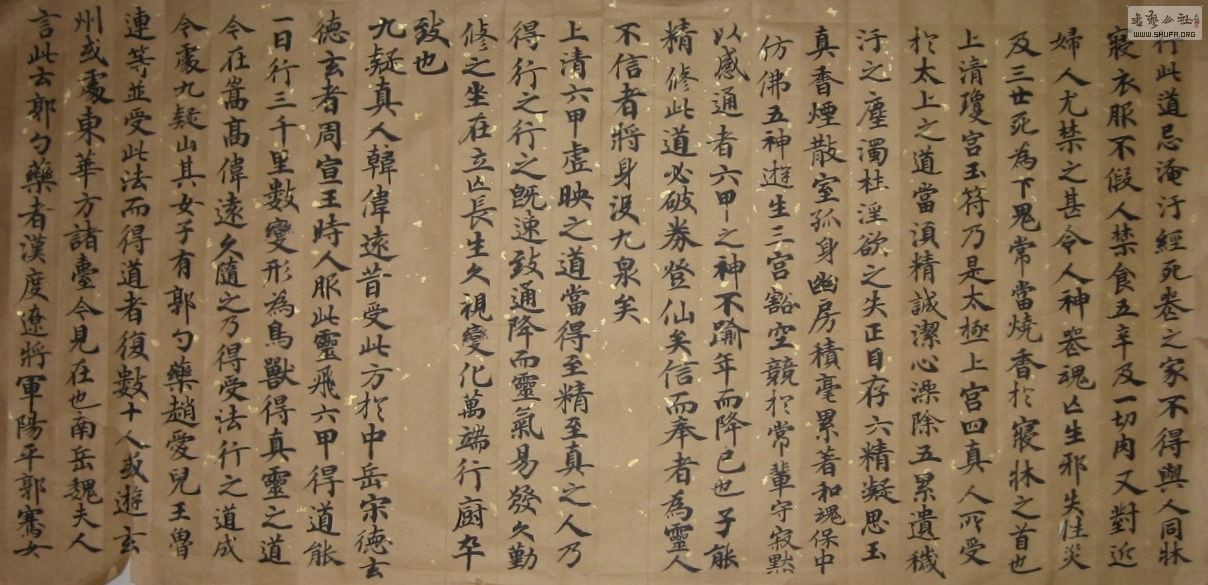 行此道忌淹汙經死丧之家不得與人同牀
寢衣服不假人禁食五辛及一切肉又對近
婦人尤禁之甚令人神器魂亾生邪失性灾
及三世死為下鬼常當燒香於寢牀之首也
上清瓊宮玉符乃是太極上宮四真人所受
於太上之道當湏精誠潔心澡除五累遺穢
汙之塵濁杜淫欲之失正目存六精凝思玉
真香煙散室孤身幽房積毫累著和魂保中
仿佛五神遊生三宮豁空競於常輩守寂黙
以感通者六甲之神不踰年而降已也子能
精修此道必破券登仙矣信而奉者為靈人
不信者將身沒九泉矣
上清六甲虛映之道當得至精至真之人乃
得行之行之既速致通降而靈氣易發久勤
修之坐在立亾長生久視變化萬端行廚卒
致也
九疑真人韓偉遠昔受此方於中岳宋德玄
德玄者周宣王時人服此靈飛六甲得道能
一日行三千里數變形為鳥獸得真靈之道
今在嵩高偉遠久隨之乃得受法行之道成
今處九疑山其女子有郭勺藥趙愛兒王魯
連等並受此法而得道者復數十人或遊玄
州或處東華方諸臺今見在也南岳魏夫人
言此云郭勺藥者漢度遼將軍陽平郭騫女
書藝公社
WWW.SHUFA.ORG